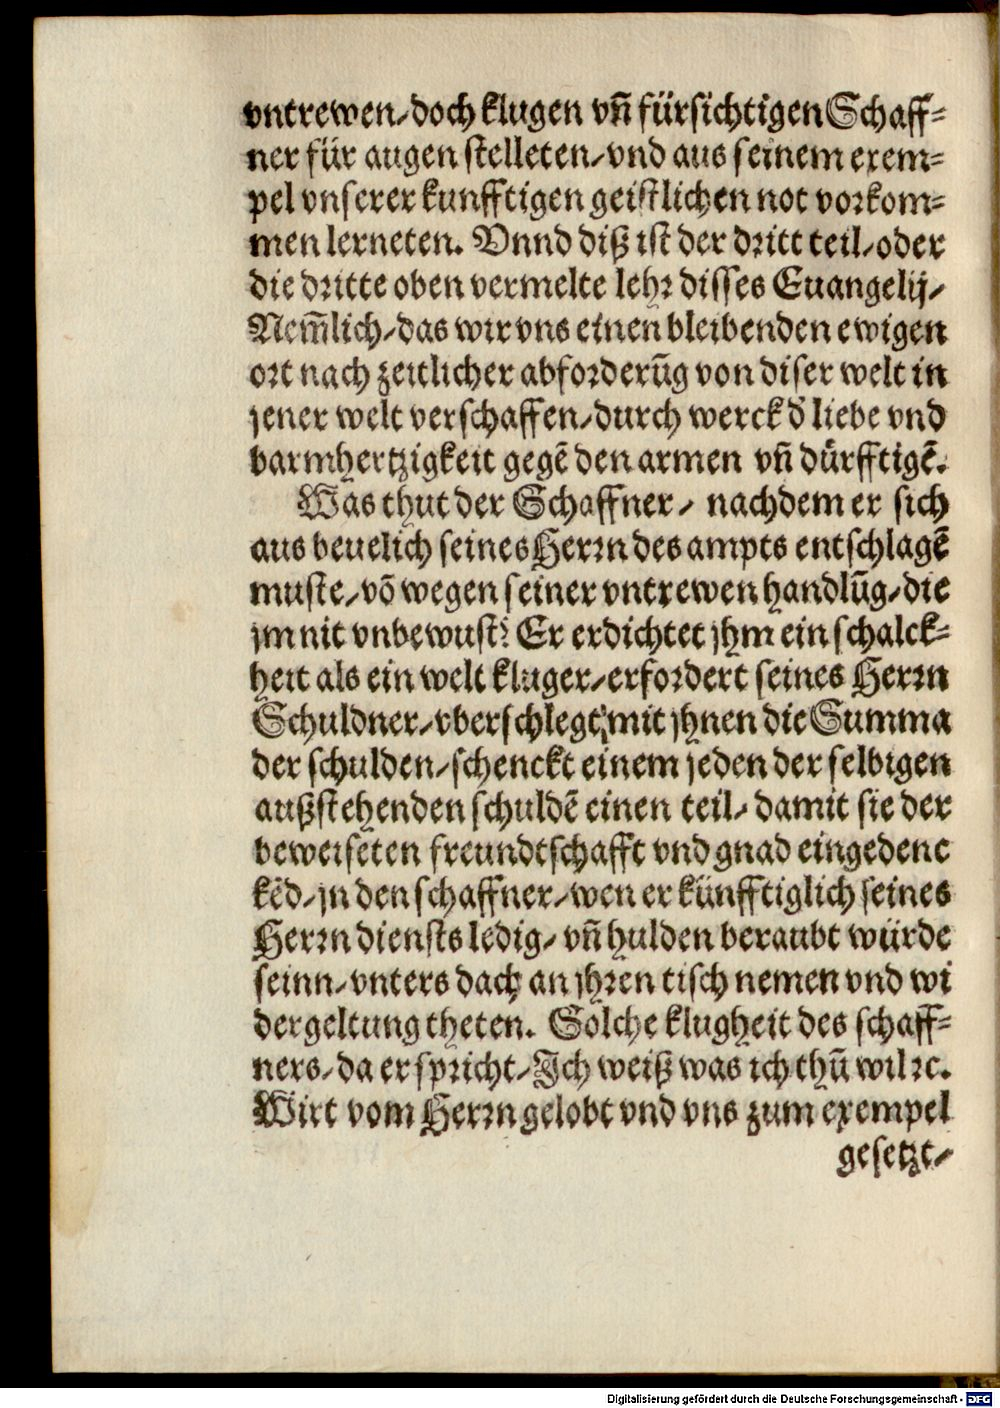 vntrewen/doch klugen vñ fürsichtigen Schaff=
ner für augen stelleten/vnd aus seinem exem=
pel vnserer kunfftigen geistlichen not vorkom=
men lerneten. Vnnd diß ist der dritt teil/oder
die dritte oben vermelte lehr disses Euangelij/
Nem̃lich/das wir vns einen bleibenden ewigen
ort nach zeitlicher abforderũg von diser welt in
jener welt verschaffen/durch werck d̕ liebe vnd
barmhertzigkeit gegẽ den armen vñ dürfftigẽ.
Was thut der Schaffner/ nachdem er sich
aus beuelich seines Herrn des ampts entschlagẽ
muste/võ wegen seiner vntrewen handlũg/die
jm nit vnbewust? Er erdichtet jhm ein schalck=
heit als ein welt kluger/erfordert seines Herrn
Schuldner/vberschlegt mit jhnen die Summa
der schulden/schenckt einem jeden der selbigen
außstehenden schuldẽ einen teil/ damit sie der
beweiseten freundtschafft vnd gnad eingedenc
kẽd/jn den schaffner/wen er künfftiglich seines
Herrn diensts ledig/ vñ hulden beraubt würde
seinn/vnters dach an jhren tisch nemen vnd wi
dergeltung theten. Solche klugheit des schaff=
ners/da er spricht/Ich weiß was ich thũ wil ꝛc.
Wirt vom Herrn gelobt vnd vns zum exempel
gesetzt/
Digitalisierung gefördert durch die Deutsche Forschungsgemeinschaft - DFG